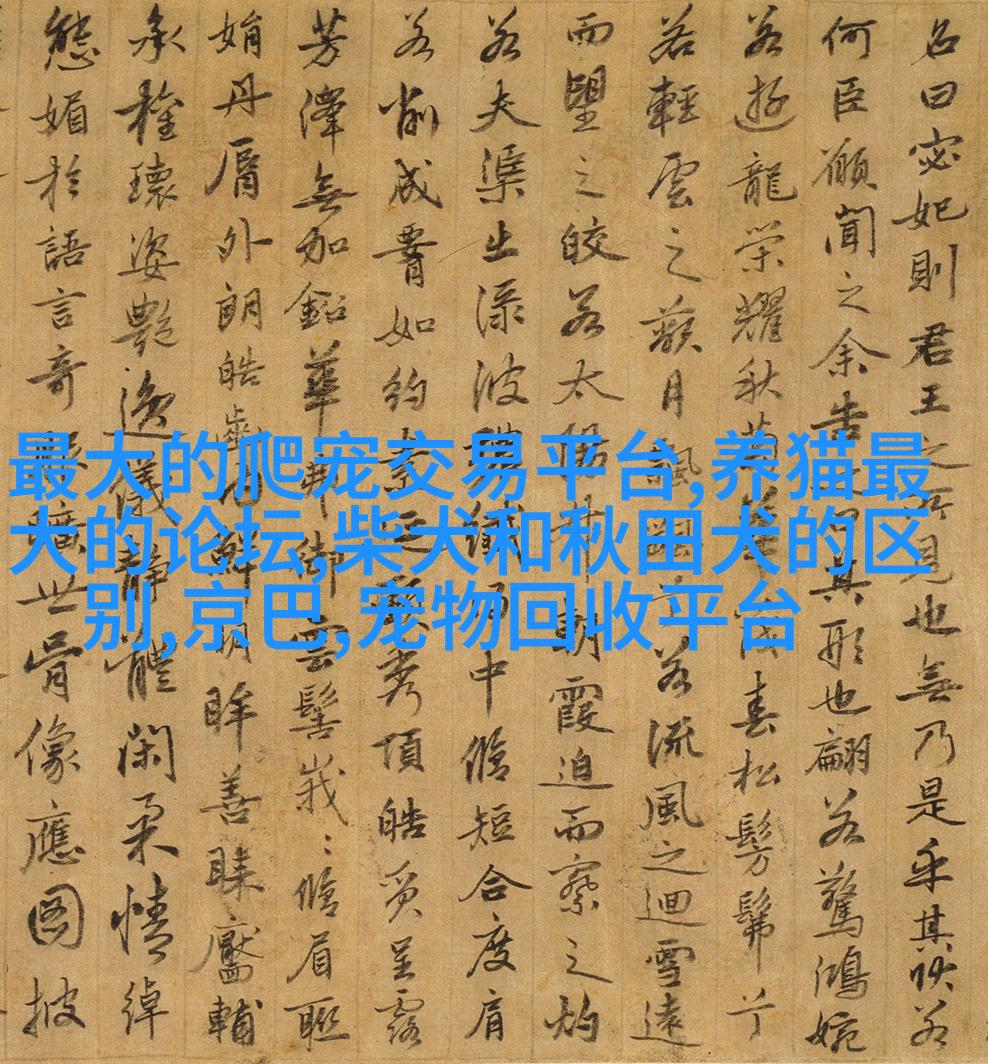 名曰宓妃則君王之所見也無乃是乎其狀若
何臣願聞之余告之曰其形也翩若驚鴻婉
若遊龍榮耀秋菊華茂春松髣髴兮
若輕雲之蔽月飄颻兮若流風之迴雪遠
而望之皎若太陽升朝霞迫而察之灼
若夫渠出淥波穠纖得中脩短合度肩
若削成署如約素延頸秀項皓質呈露
芳澤無加鉛華弗御雲髻峩〻脩眉聯
娟丹脣外朗皓齒內鮮明眸善睞靨輔
承權瓌姿艷逸儀靜體閑柔情綽
態媚於語言奇服曠世骨像應圖披
最大的爬宠交易平台,养猫最
大的论坛,柴犬和秋田犬的区
别,京巴,宠物回收平台